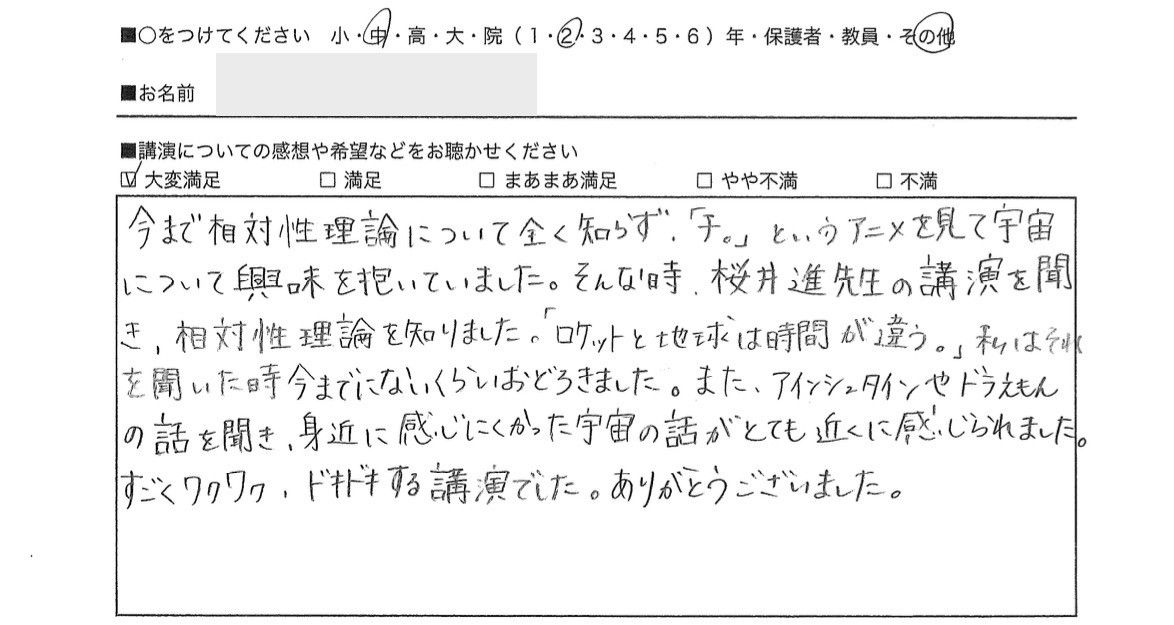 ■○をつけてください 小・中・高・大・院（1・2・3・4・5・6）年・保護者・教員・その他
■お名前
■講演についての感想や希望などをお聴かせください
☑ 大変満足 □ 満足 □ まあまあ満足 □ やや不満 □ 不満
今まで相対性理論について全く知らず、「チ。」というアニメを見て宇宙
について興味を抱いていました。そんな時、桜井進先生の講演を聞
き、相対性理論を知りました。「ロケットと地球は時間が違う。」私はそれ
を聞いた時今までにないくらいおどろきました。また、アインシュタインやドラえもん
の話を聞き、身近に感じにくかった宇宙の話がとても近くに感じられました。
すごくワクワク、ドキドキする講演でした。ありがとうございました。